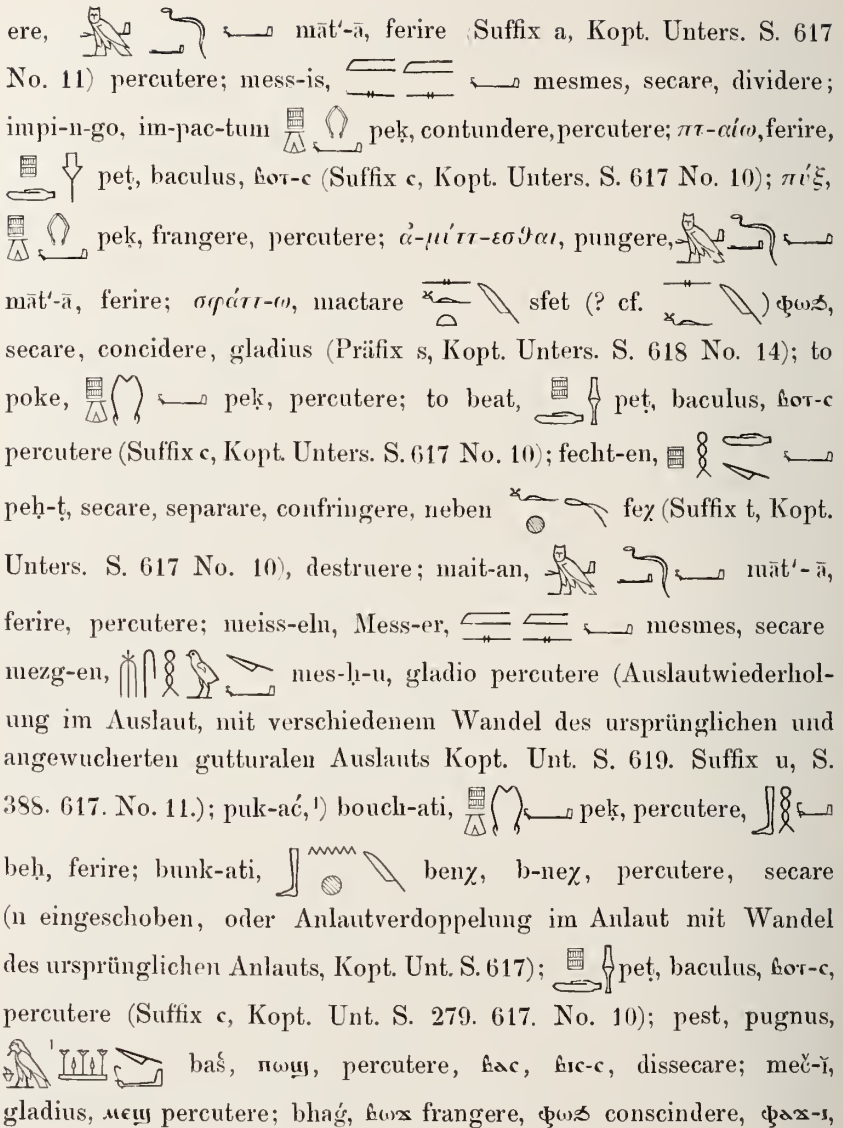 ere, māt′-ā, ferire (Suffix a, Kopt. Unters. S. 617
No. 11) percutere; mess-is, mesmes, secare, dividere;
impi-n-go, im-pac-tum peḳ, contundere, percutere; πτ-αίω, ferire,
peṭ, baculus, ⲃⲟⲧ-ⲥ (Suffix c, Kopt. Unters. S. 617 No. 10); πύξ,
peḳ, frangere, percutere; ἀ-μύττ-εσθαι, pungere,
māt′-ā, ferire; σφάττ-ω, mactare sfet (? cf. ) ⲫⲱϭ,
secare, concidere, gladius (Präfix s, Kopt. Unters. S. 618 No. 14); to
poke, peḳ, percutere; to beat, peṭ, baculus, ⲃⲟⲧ-ⲥ
percutere (Suffix c, Kopt. Unters. S. 617 No. 10); fecht-en,
peḥ-ṭ, secare, separare, confringere, neben feχ (Suffix t, Kopt.
Unters. S. 617 No. 10), destruere; mait-an, māt′-ā,
ferire, percutere; meiss-eln, Mess-er, mesmes, secare
mezg-en, mes-ḥ-u, gladio percutere (Auslautwiederhol-
ung im Auslaut, mit verschiedenem Wandel des ursprünglichen und
angewucherten gutturalen Auslauts Kopt. Unt. S. 619. Suffix u, S.
388. 617. No. 11.); puk-ać, ¹) bouch-ati, peḳ, percutere,
beḥ, ferire; bunk-ati, benχ, b-neχ, percutere, secare
(n eingeschoben, oder Anlautverdoppelung im Anlaut mit Wandel
des ursprünglichen Anlauts, Kopt. Unt. S. 617); peṭ, baculus, ⲃⲟⲧ-ⲥ,
percutere (Suffix c, Kopt. Unt. S. 279. 617. No. 10); pest, pugnus,
baš, ⲡⲱϣ, percutere, ⲃⲁⲥ, ⲃⲓⲥ-ⲥ, dissecare; meč-ĭ,
gladius, ⲙⲉϣ percutere; bhaǵ, ⲃⲱϫ frangere, ⲫⲱϭ conscindere, ⲫⲁϫ-ⲓ,